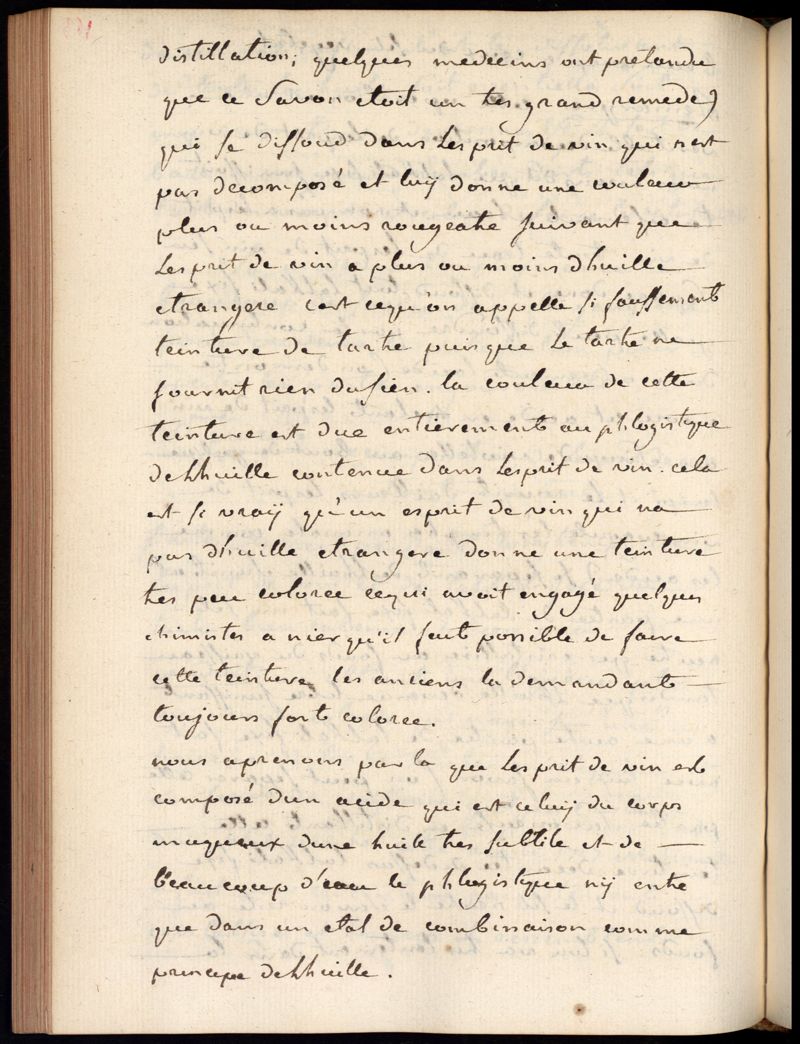 distillation; quelques medecins ont pretandu
que ce Savon etoit un tres grand remede)
qui se dissoud dans Lesprit de vin qui n'est
pas decomposé et luÿ donne une couleur
plus ou moins rougeatre suivant que
Lesprit de vin a plus ou moins dhuille
etrangere c'est cequ'on appelle si faussement
teinture de tartre puisque Le tartre ne
fournit rien dusien. la couleur de cette
teinture est due entierement au phlogistique
de Lhuille contenue dans Lesprit de vin. cela
est si vraÿ qu'un esprit de vin qui na
pas dhuille etrangere donne une teinture
tres peu coloree cequi avoit engagé quelques
chimistes a nier qu'il fent possible de faire
cette teinture les anciens la demandant
toujours fort coloree.
nous aprenons par la que Lesprit de vin est
composé dun acide qui est celuÿ du corps
muqueux dune huile tres subtile et de
beaucoup d'eau le phlogistique nÿ entre
que dans un etat de combinaison comme
principe de Lhuille.